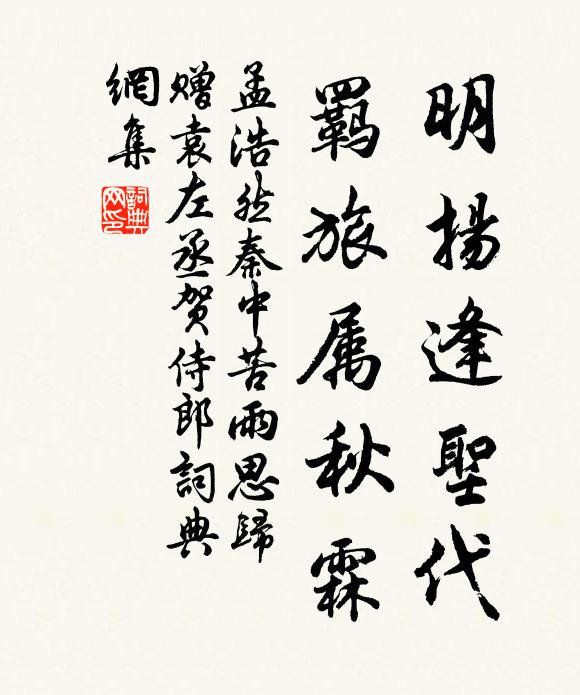 明揚逢聖代
羇旅属秋霖
孟浩然秦中苦雨思歸
贈袁左丞贺侍郎詞典
網集
詞典網印